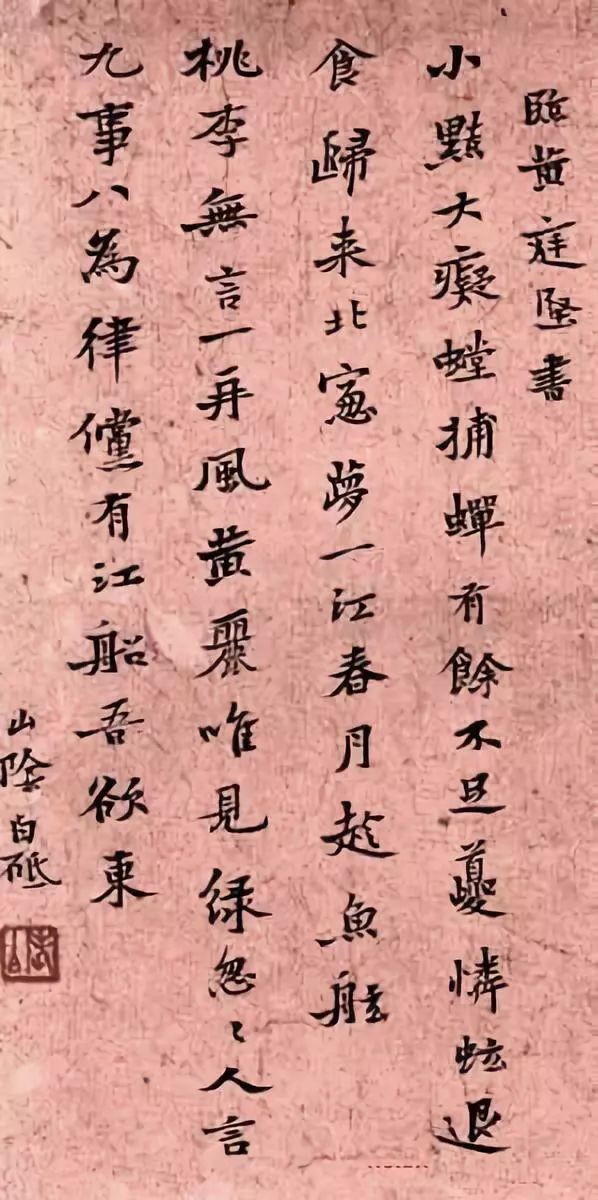 臨黃庭堅書
小黠大癡螳捕蟬有餘不足夔憐蚿退
食歸来北窓夢一江春月趁魚船
桃李無言一再風黃麗唯見緑怱〻人言
九事八為律儻有江船吾欲東
山陰白砥